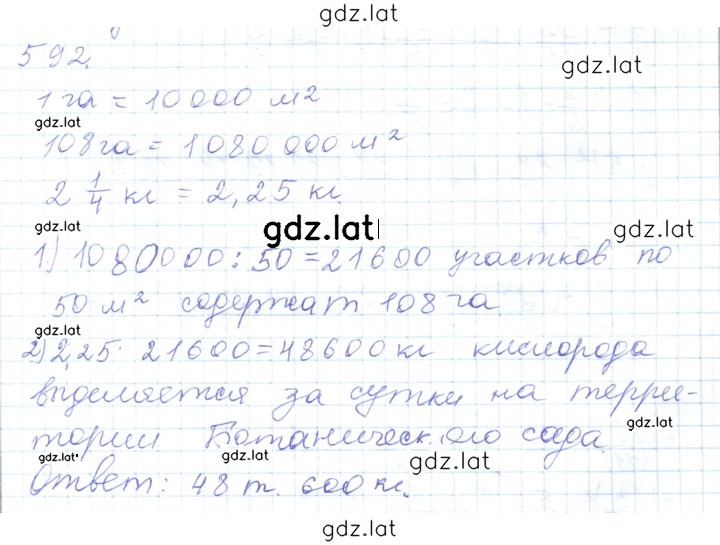 gdz.lat
592.
gdz.lat
1 га = 10000 м²
gdz.lat
108 га = 1080 000 м²
2 1/4 кг = 2,25 кг.
gdz.lat
gdz.lat
gdz.lat
1) 1080000 : 50 = 21600 участков по
50 м² содержат 108 га.
gdz.lat
2) 2,25 · 21600 = 48600 кг кислорода
выделяется за сутки на терри-
gdz.lat
тории Ботанического сада.
gdz.lat
gdz.lat
gdz.lat
Ответ: 48 т. 600 кг.
gdz.lat